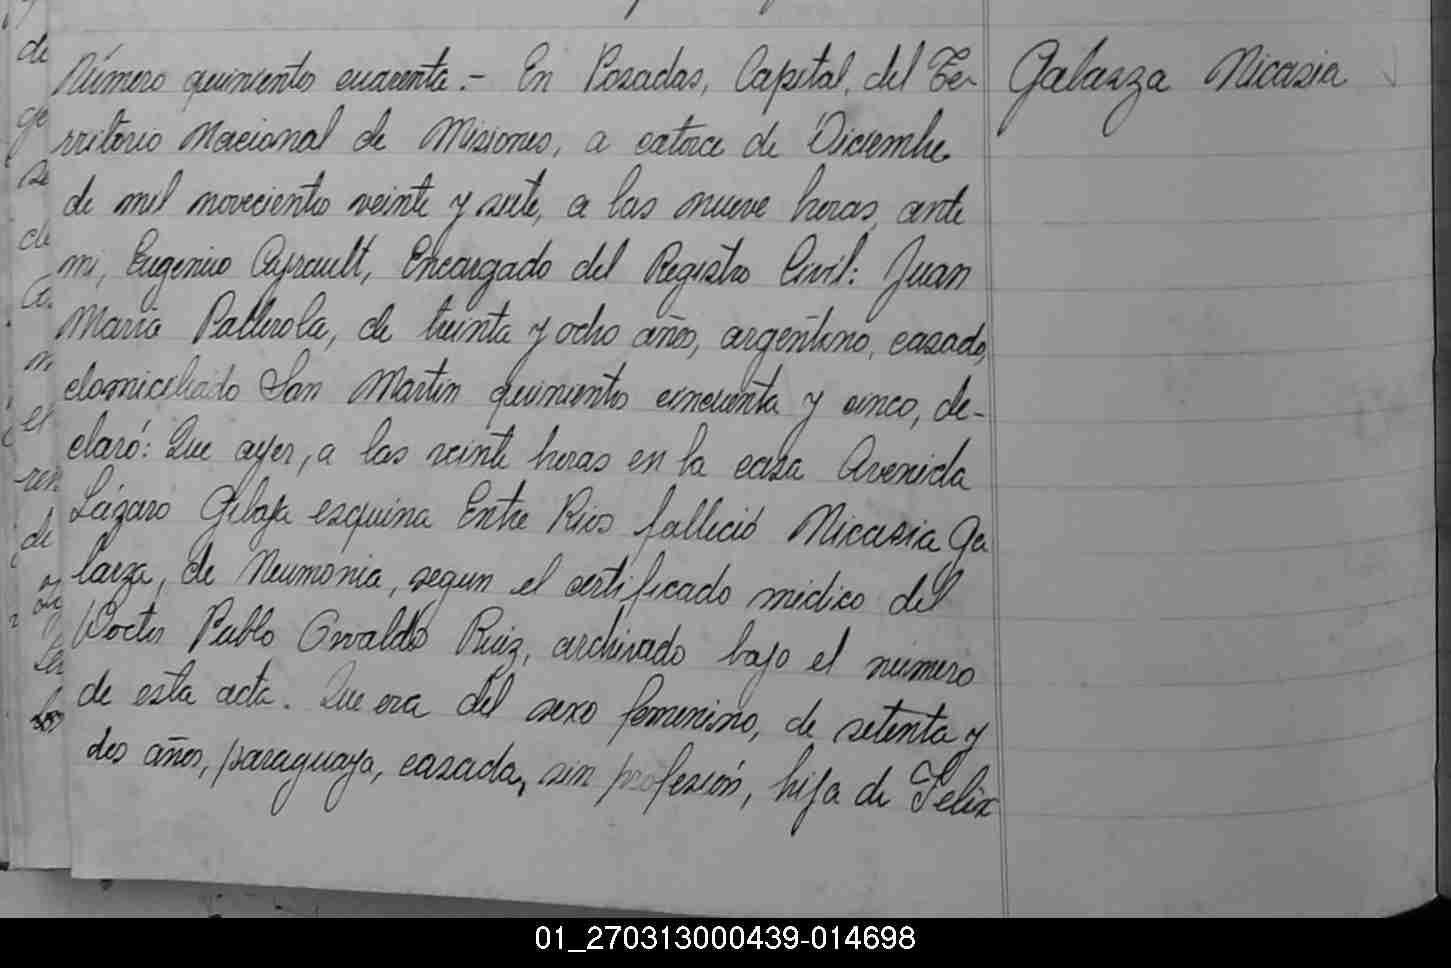 Número quinientos cuarenta.- En Posadas, Capital, del Te-
Galarza Nicasia
rritorio Nacional de Misiones, a catorce de Diciembre
de mil novecientos veinte y siete, a las nueve horas, ante
mi, Eugenio Ayrault, Encargado del Registro Civil: Juan
Maria Pallerola, de treinta y ocho años, argentino, casado,
domiciliado San Martin quinientos cincuenta y cinco, de-
claró: Que ayer, a las veinte horas en la casa Avenida
Lázaro Gibaja esquina Entre Rios falleció Nicasia Ga
larza, de Neumonia, segun el certificado médico del
Doctor Pablo Osvaldo Ruiz, archivado bajo el número
de esta acta. Que era del sexo femenino, de setenta y
dos años, paraguaya, casada, sin profesión, hija de Felix
01_270313000439-014698